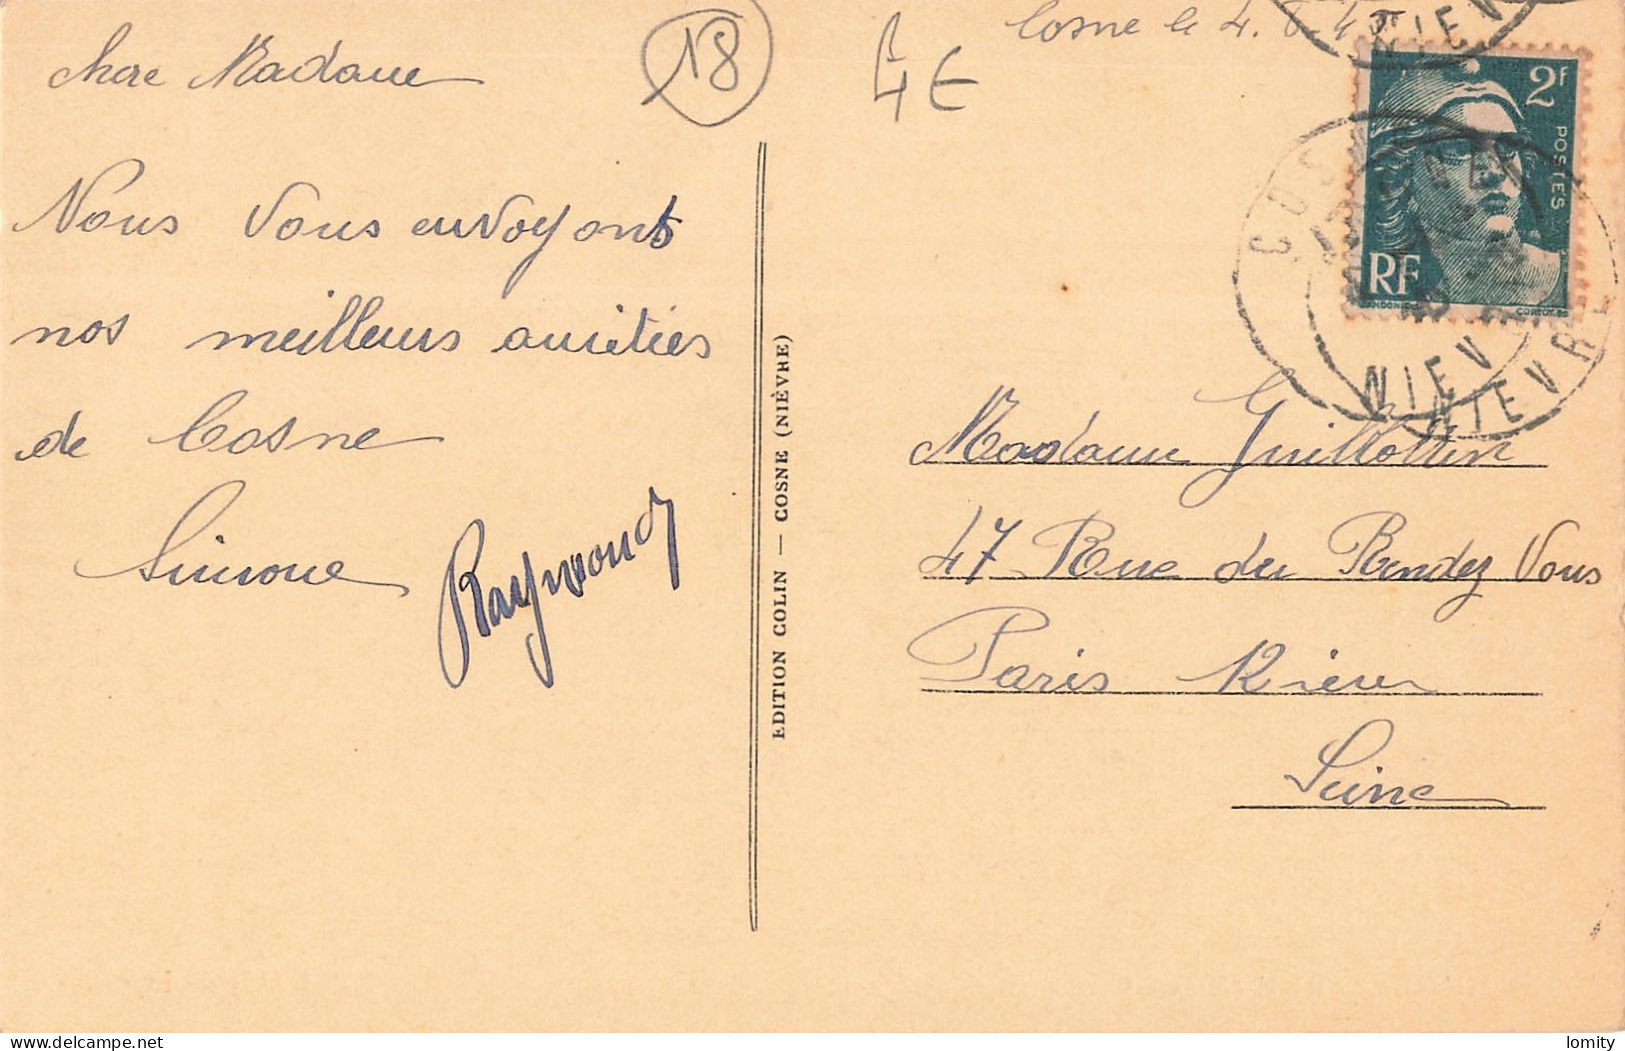 chère Madame
Nous vous envoyons
nos meilleurs amitiés
de Cosne
Simone
Raymond
18
4€
Cosne le 4.
2F
POSTES
RF
COS
NIEV
NIEVRE
NIEV
EDITION COLIN — COSNE (NIÈVRE)
Madame Guillottin
47 Rue du Rendez Vous
Paris 12ième
Seine
www.delcampe.net
lomity